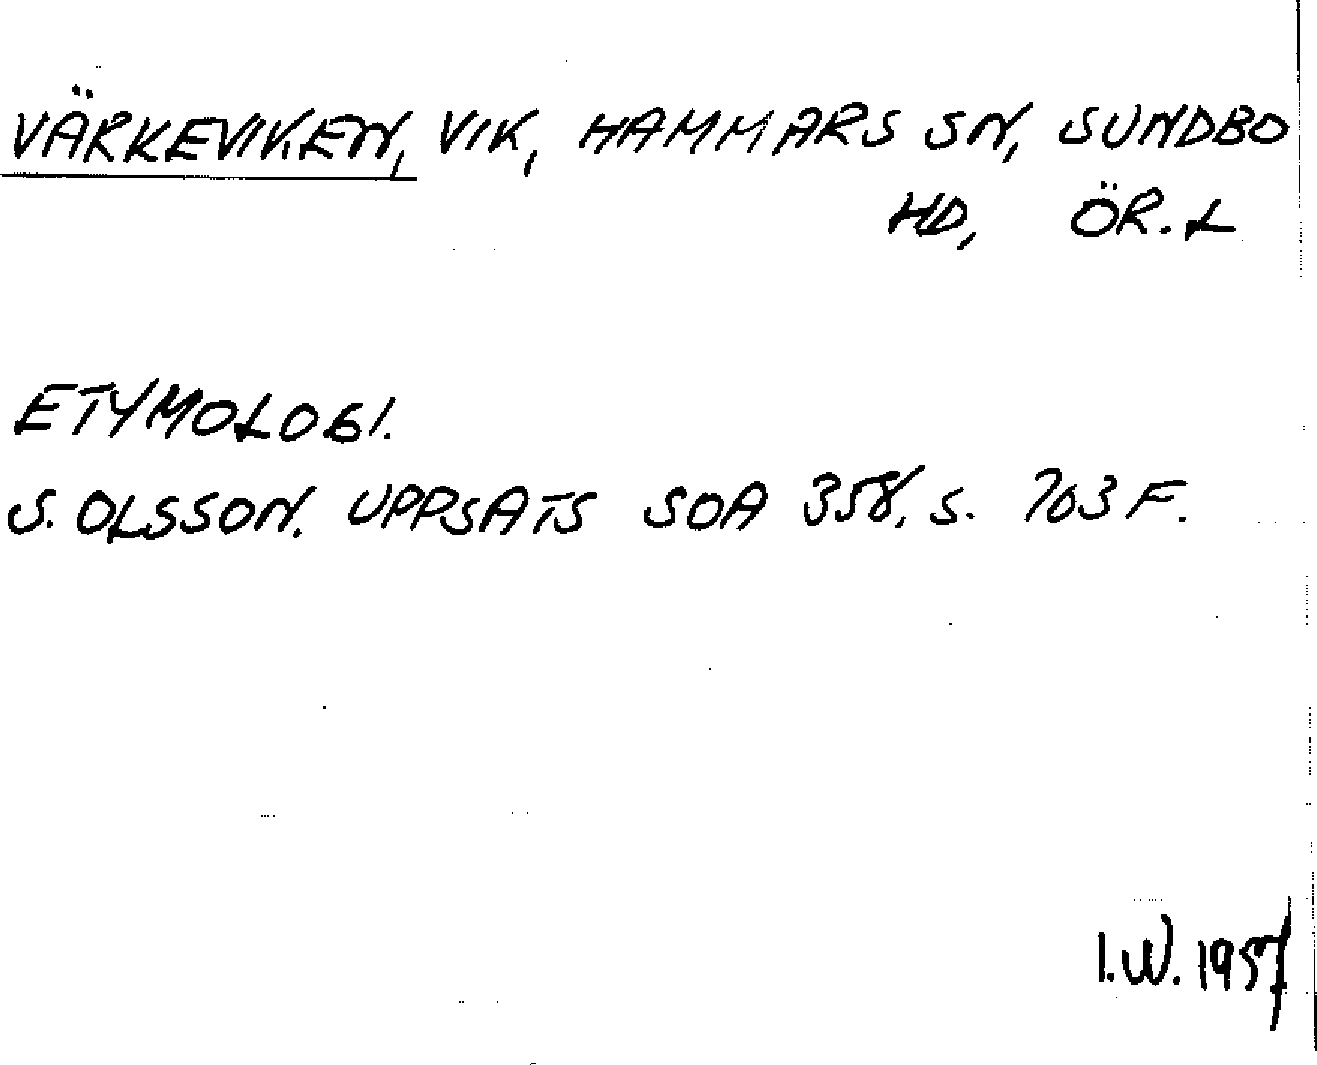 VÄRKEVIKEN, VIK, HAMMARS SN, SUNDBO
HD, ÖR. L
ETYMOLOGI.
S. OLSSON. UPPSATS SOA 358, S. 703 F.
I.W. 1957